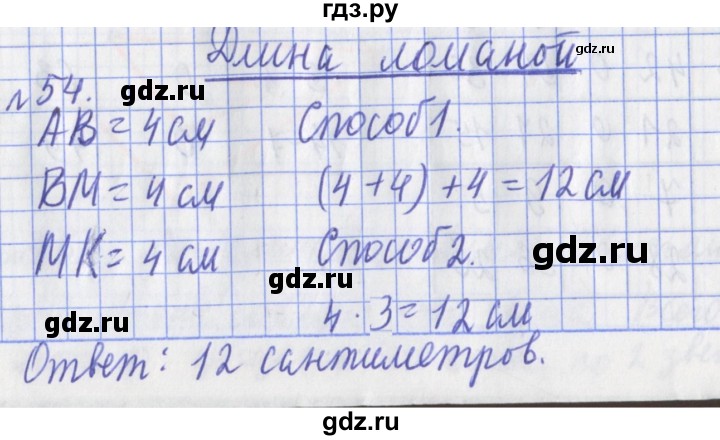 гдз.ру
Длина ломаной
№54.
АВ = 4 см Способ 1.
ВМ = 4 см (4 + 4) + 4 = 12 см
МК = 4 см Способ 2.
4 · 3 = 12 см
Ответ: 12 сантиметров.
gdz.ru
gdz.ru
gdz.ru
gdz.ru
gdz.ru
gdz.ru
gdz.ru
gdz.ru